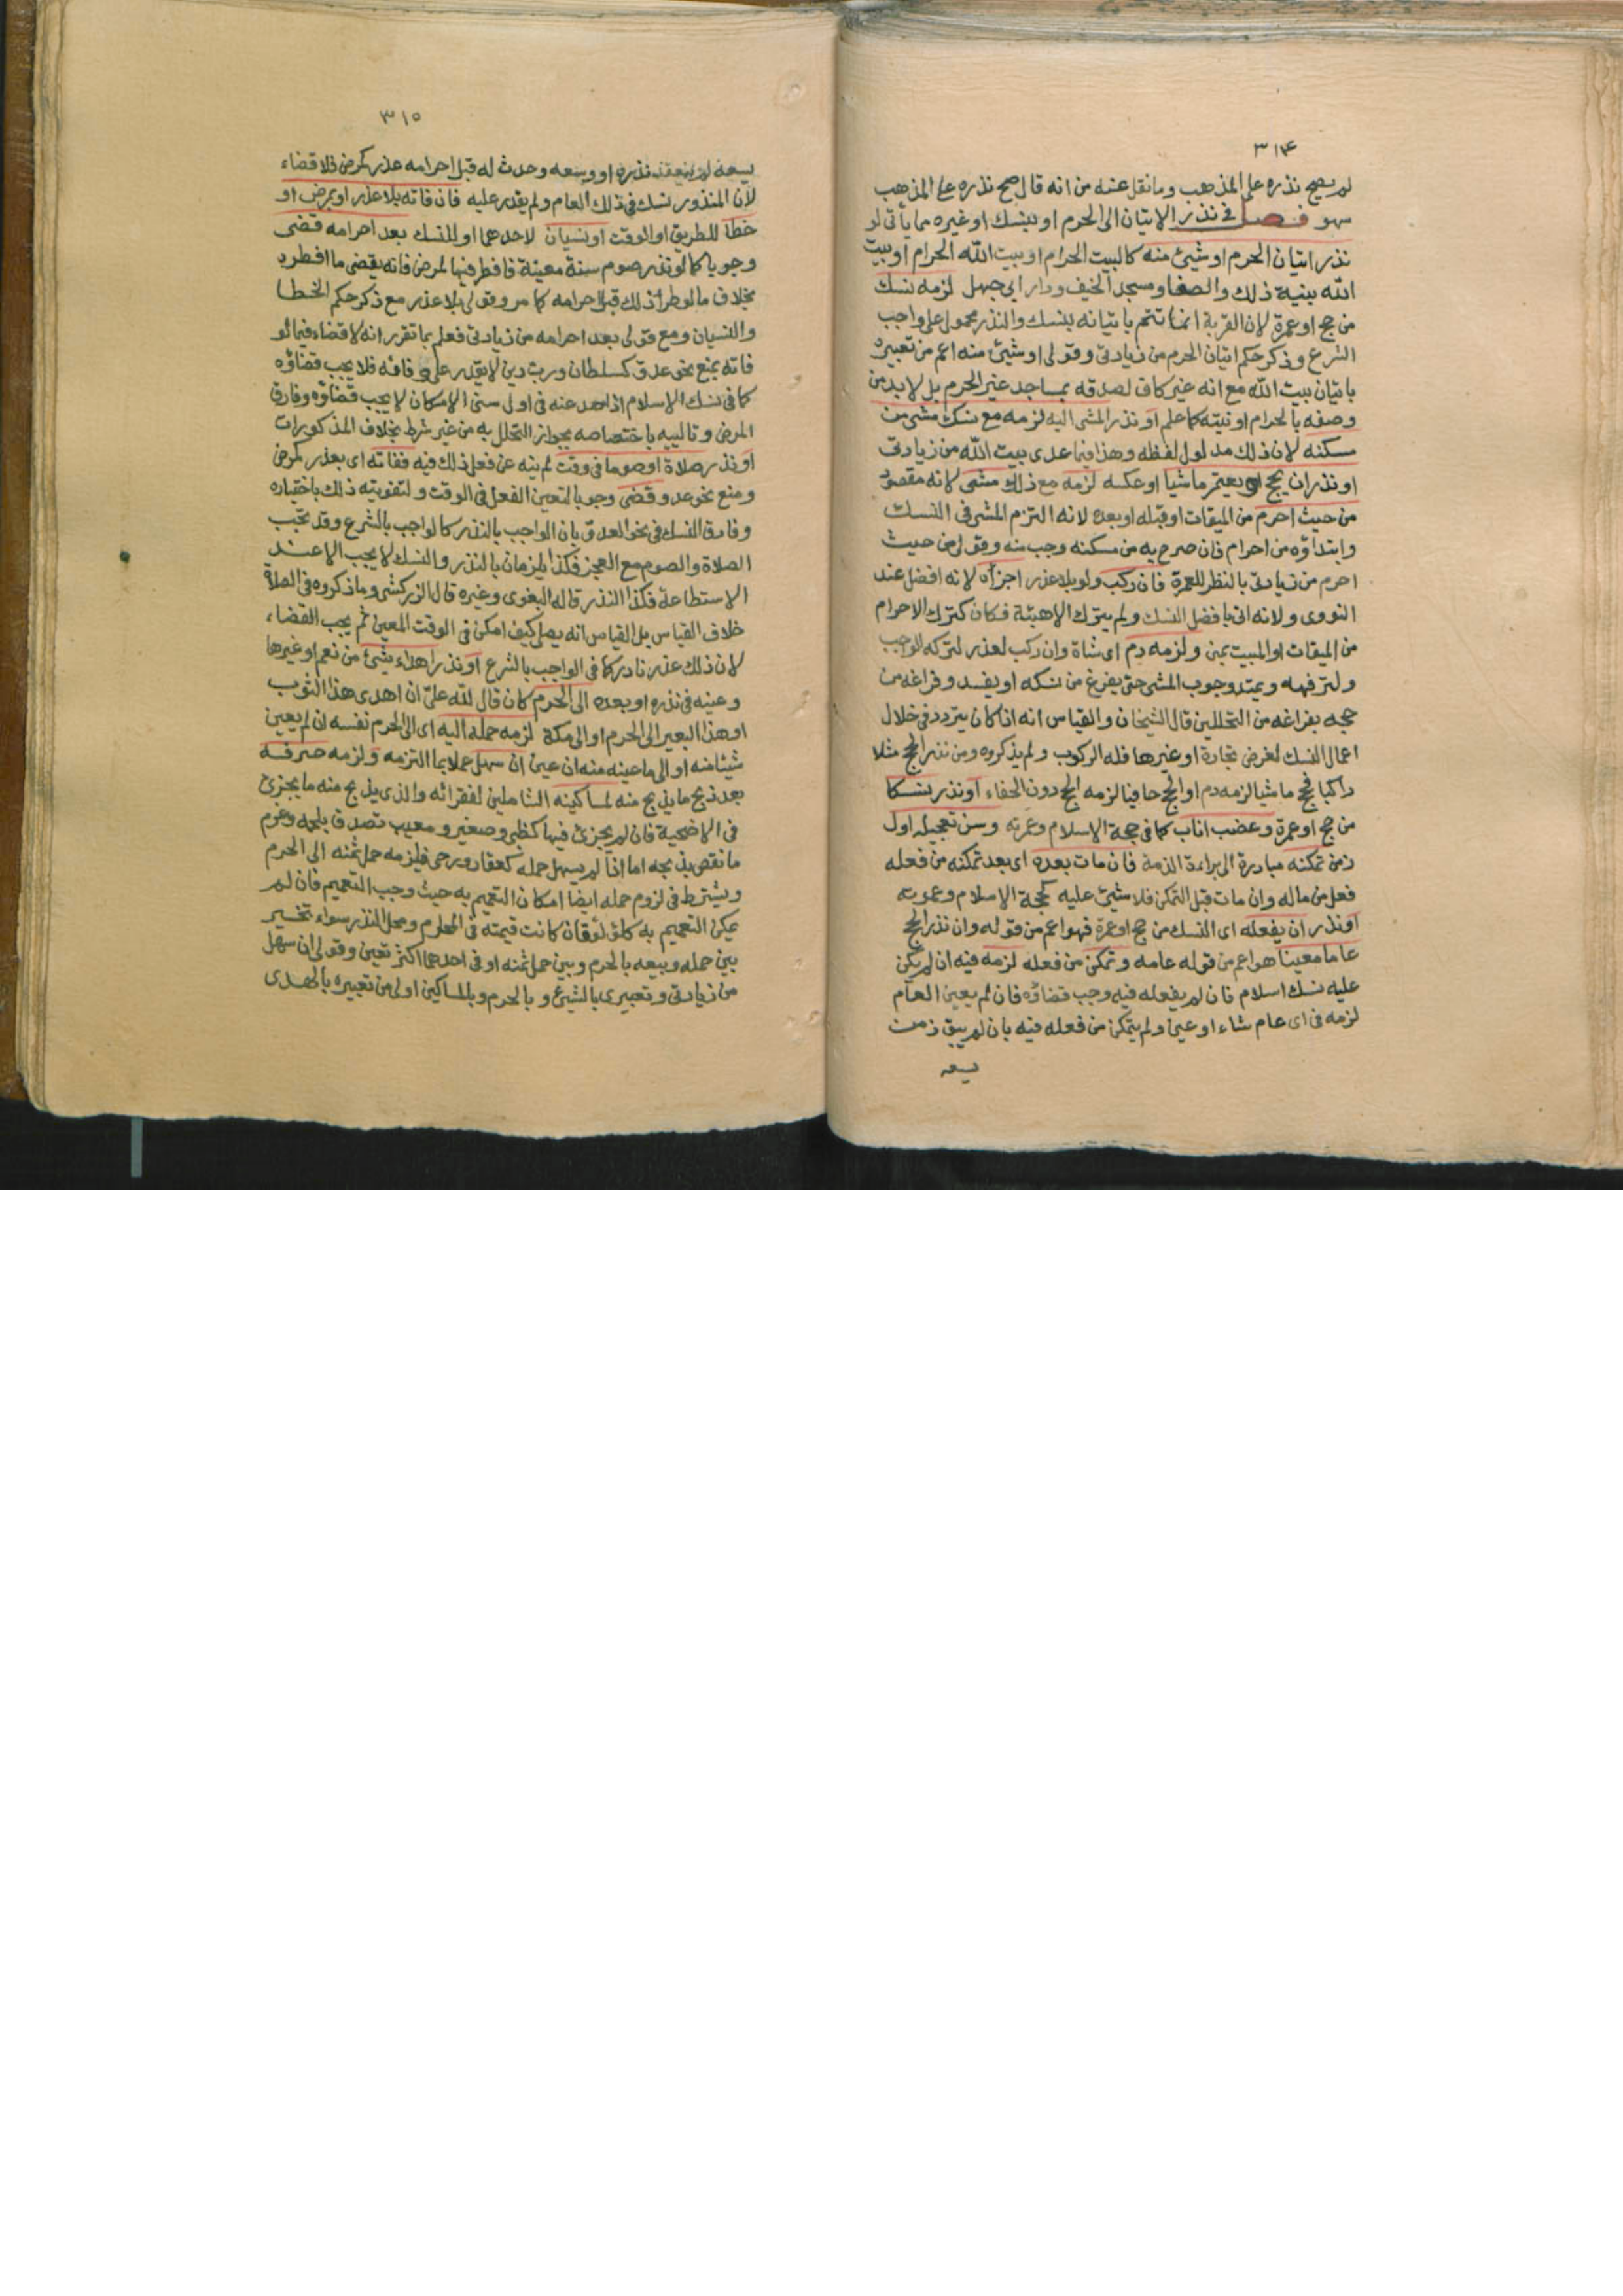 ٣١٤
لم يصح نذره على المذهب وما نقل عنه من انه قال صح نذره على المذهب
سهو فصل في نذر الاتيان الى الحرم او بنسك او غيره مما يأتي لو
نذر اتيان الحرم او شيئ منه كالبيت الحرام او بيت الله الحرام او بيت
الله بنية ذلك والصفا ومسجد الخيف ودار ابي جهل لزمه نسك
من حج او عمرة لان القربة انما تتم باتيانه بنسك والنذر محمول على واجب
الشرع وذكر حكم اتيان الحرم من زيادتي وقولي او شيئ منه اعم من تعبيره
باتيان بيت الله مع انه غير كاف لصدقه بمساجد غير الحرم بل لا بد من
وصفه بالحرام او نيته كما علم او نذر المشي اليه لزمه مع نسك مشي من
مسكنه لان ذلك مدلول لفظه وهذا فيما عدى بيت الله من زيادتي
او نذر ان يحج او يعتمر ماشيا او عكسه لزمه مع ذلك مشي لانه مقصود
من حيث احرم من الميقات او قبله او بعده لانه التزم المشي في النسك
وابتداؤه من احرام فان صرح به من مسكنه وجب منه وقولي من حيث
احرم من زيادتي بالنظر للعمرة فان ركب ولو بلا عذر اجزأه لانه افضل عند
النووى ولانه اتى بافضل النسك ولم يترك الا هيئة فكان كترك الاحرام
من الميقات او المبيت بمنى ولزمه دم اى شاة وان ركب لعذر لتركه الواجب
ولترفهه ويمتد وجوب المشي حتى يفرغ من نسكه او يفسد وفراغه من
حجه بفراغه من التحللين قال الشيخان والقياس انه اذا كان يتردد في خلال
اعمال النسك لغرض تجارة او غيرها فله الركوب ولم يذكروه ومن نذر الحج مثلا
راكبا فحج ماشيا لزمه دم او الحج حافيا لزمه الحج دون الحفاء او نذر نسكا
من حج او عمرة وعضب اناب كما في حجة الاسلام وعمرته وسن تعجيله اول
زمن تمكنه مبادرة الى براءة الذمة فان مات بعده اى بعد تمكنه من فعله
فعل من ماله وان مات قبل التمكن فلا شيئ عليه كحجة الاسلام وعمرته
او نذر ان يفعله اى النسك من حج او عمرة فهو اعم من قوله وان نذر الحج
عاما معينا هو اعم من قوله عامه وتمكن من فعله لزمه فيه ان لم يكن
عليه نسك اسلام فان لم يفعله فيه وجب قضاؤه فان لم يعين العام
لزمه في اى عام شاء او عين ولم يتمكن من فعله فيه بان لم يبق زمن
يسعه
٣١٥
يسعه لم ينعقد نذره او وسعه وحدث له قبل احرامه عذر كمرض فلا قضاء
لأن المنذور نسك في ذلك العام ولم يقدر عليه فان فاته بلا عذر او بمرض او
خطأ للطريق او الوقت او نسيان لاحدهما او للنسك بعد احرامه قضى
وجوبا كما لو نذر صوم سنة معينة فافطر فيها لمرض فانه يقضي ما افطره
بخلاف ما لو طرأ ذلك قبل احرامه كما مر وقولي بلا عذر مع ذكر حكم الخطا
والنسيان ومع قولي بعد احرامه من زيادتي فعلم بما تقرر انه لا قضاء فيما لو
فاته بمنع نحو عدوّ كسلطان ورب دين لا يقدر على وفائه فلا يجب قضاؤه
كما في نسك الاسلام اذا صد عنه في اول سني الامكان لا يجب قضاؤه وفارق
المرض وتالييه باختصاصه بجواز التحلل به من غير شرط بخلاف المذكورات
او نذر صلاة او صوما في وقت لم ينه عن فعل ذلك فيه ففاته اى بعذر كمرض
ومنع نحو عدو قضى وجوبا لتعين الفعل في الوقت ولتفويته ذلك باختياره
وفارق النسك في نحو العدوّ بان الواجب بالنذر كالواجب بالشرع وقد تجب
الصلاة والصوم مع العجز فكذا يلزمان بالنذر والنسك لا يجب الا عند
الاستطاعة فكذا النذر قاله البغوى وغيره قال الزركشى وما ذكروه في الصلاة
خلاف القياس بل القياس انه يصلي كيف امكن في الوقت المعين ثم يجب القضاء
لان ذلك عذر نادر كما في الواجب بالشرع او نذر اهداء شيئ من نعم او غيرها
وعينه في نذره او بعده الى الحرم كان قال لله عليّ ان اهدى هذا الثوب
او هذا البعير الى الحرم او الى مكة لزمه حمله اليه اى الى الحرم نفسه ان لم يعين
شيئا منه او الى ما عينه منه ان عين ان سهل عملا بما التزمه ولزمه صرفه
بعد ذبح ما يذبح منه لمساكينه الشاملين لفقرائه والذى يذبح منه ما يجزئ
في الاضحية فان لم يجزئ فيها كظبى وصغير ومعيب تصدق بلحمه وغرم
ما نقص بذبحه اما اذا لم يسهل حمله كعقار ورحى فيلزمه حمل ثمنه الى الحرم
ويشترط في لزوم حمله ايضا امكان التعميم به حيث وجب التعميم فان لم
يمكن التعميم به كلؤلؤ فان كانت قيمته في الحرم ومحل النذر سواء تخير
بين حمله وبيعه بالحرم وبين حمل ثمنه او في احدهما اكثر تعين وقولي ان سهل
من زيادتي وتعبيرى بالشيئ وبالحرم وبالمساكين اولى من تعبيره بالهدى